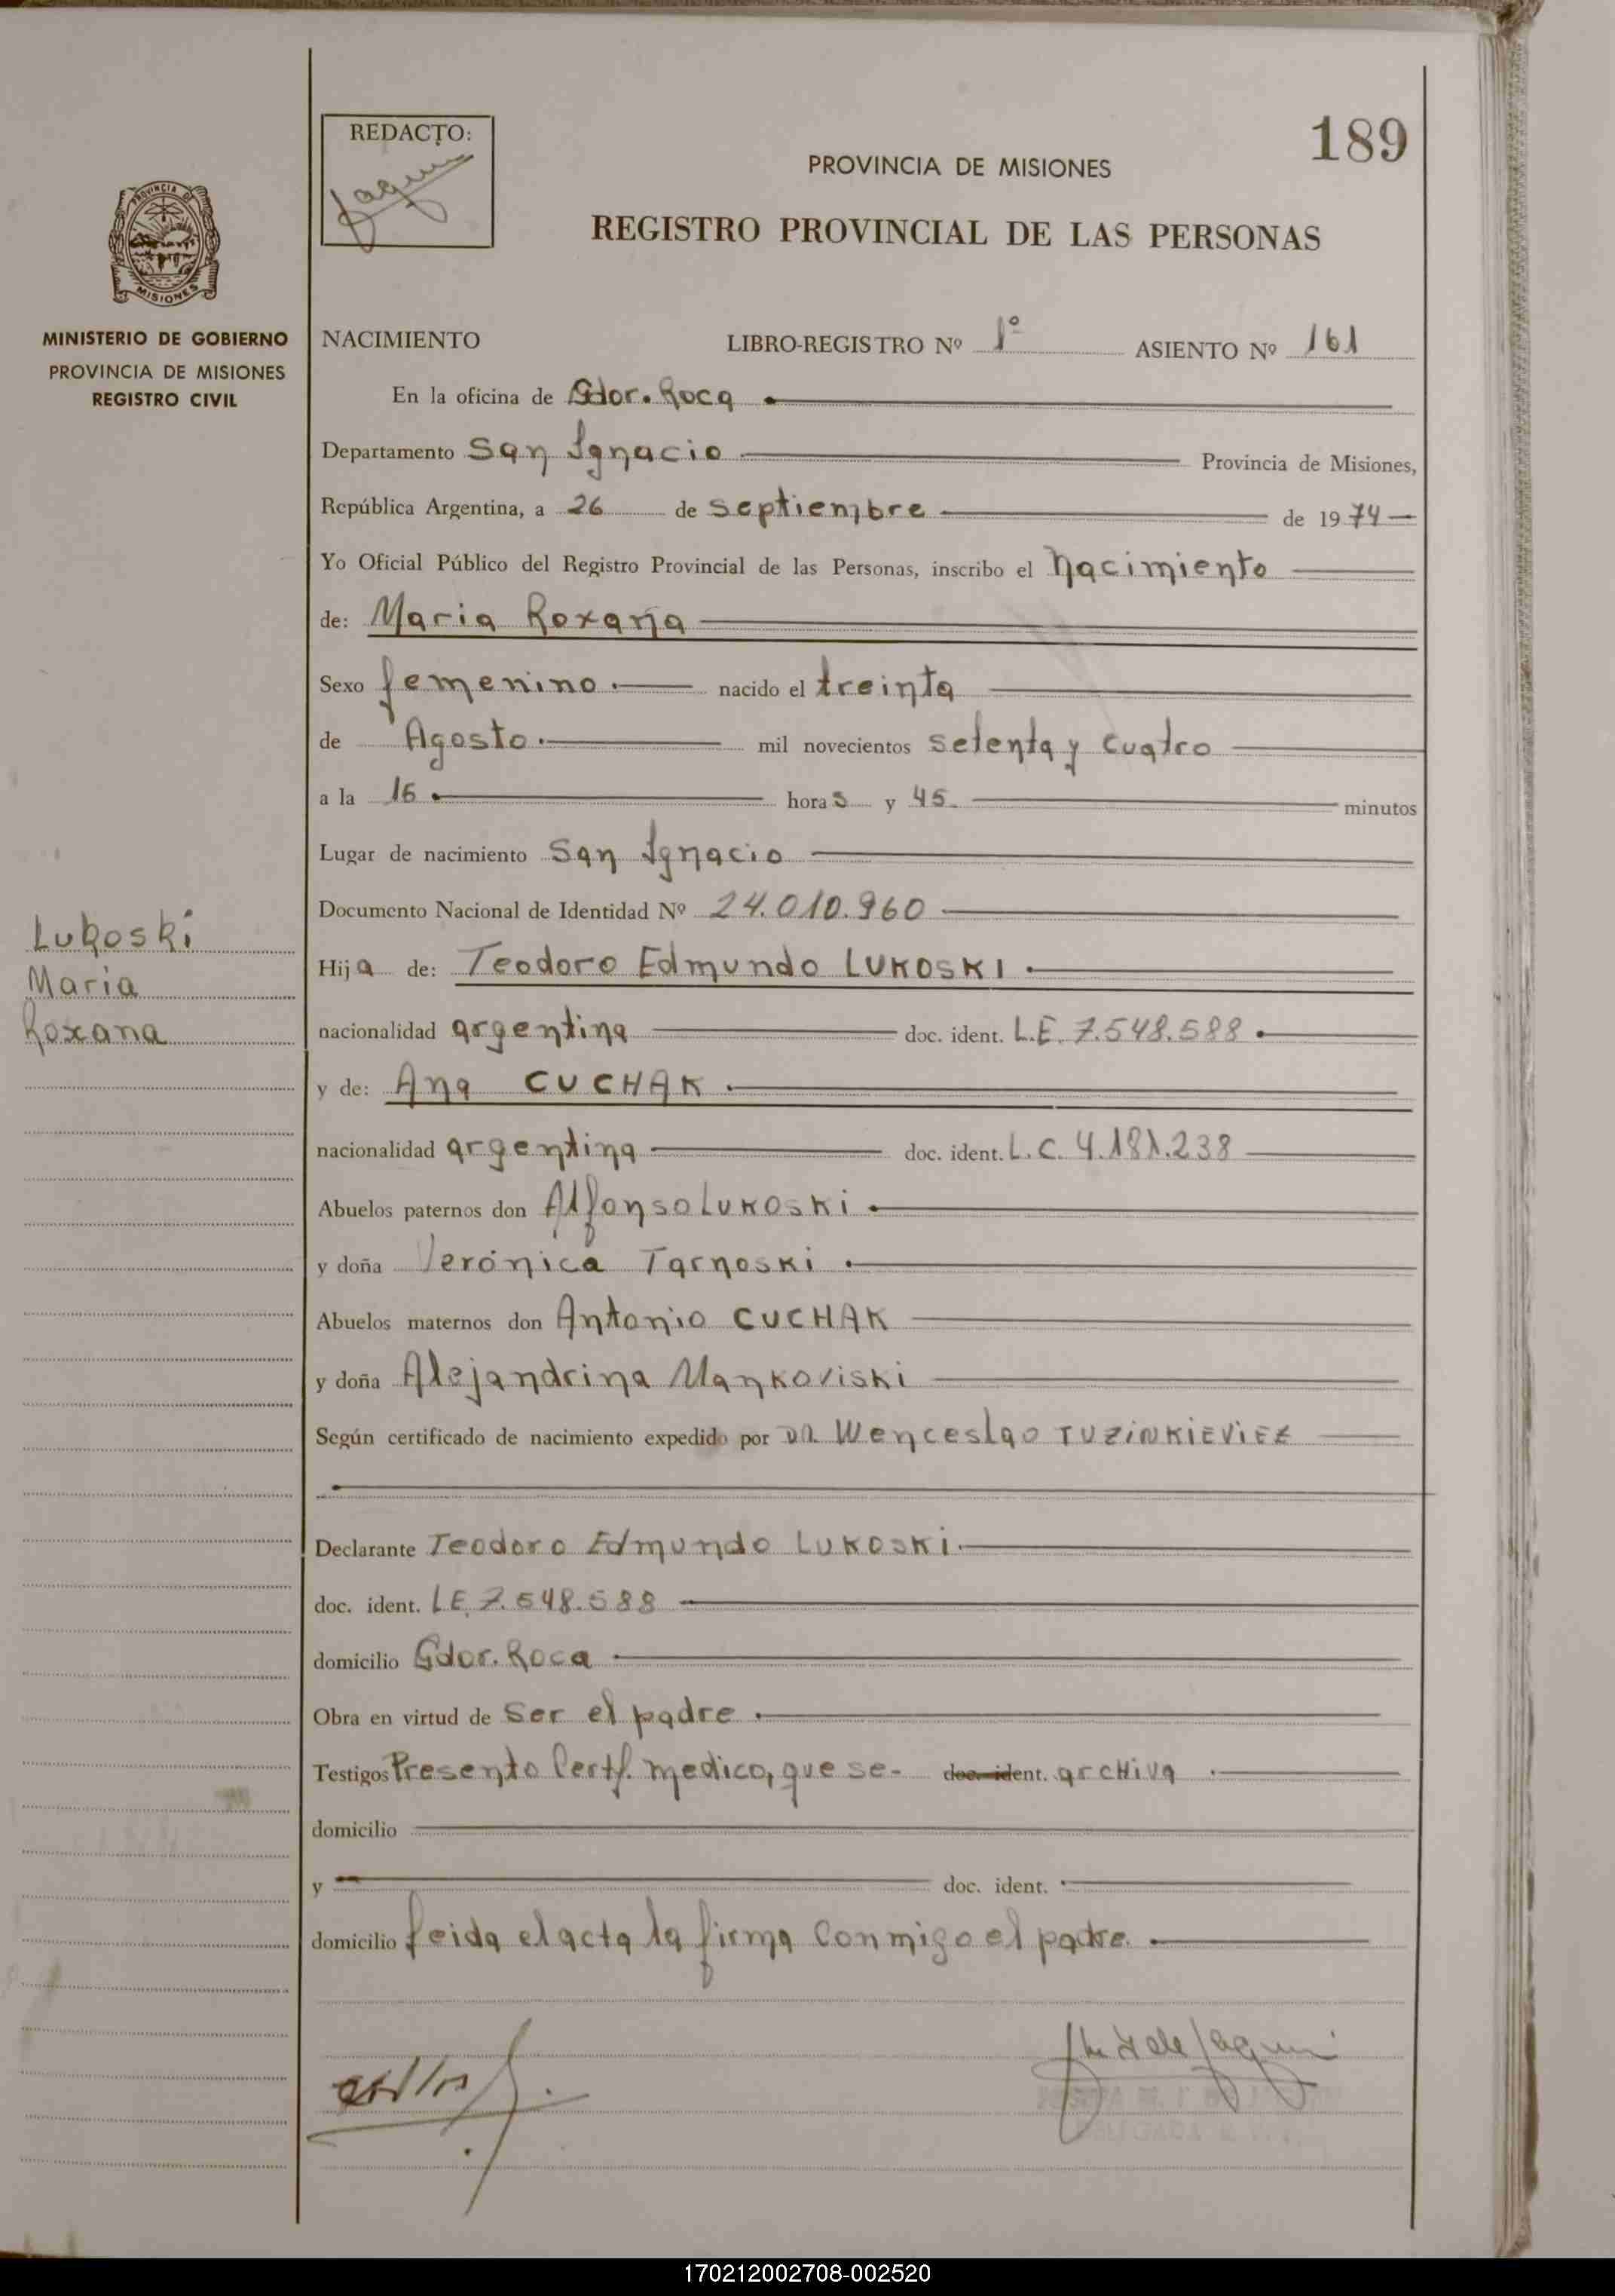 189
REDACTO:
PROVINCIA DE MISIONES
REGISTRO PROVINCIAL DE LAS PERSONAS
PROVINCIA DE
MISIONES
MINISTERIO DE GOBIERNO
PROVINCIA DE MISIONES
REGISTRO CIVIL
NACIMIENTO LIBRO-REGISTRO Nº 1º ASIENTO Nº 161
En la oficina de Gdor. Roca
Departamento San Ignacio Provincia de Misiones,
República Argentina, a 26 de septiembre de 1974
Yo Oficial Público del Registro Provincial de las Personas, inscribo el nacimiento
de: Maria Roxana
Sexo femenino. nacido el treinta
de Agosto. mil novecientos setenta y cuatro
a la 16 horas y 45. minutos
Lugar de nacimiento San Ignacio
Documento Nacional de Identidad Nº 24.010.960
Lukoski
Maria
Roxana
Hija de: Teodoro Edmundo LUKOSKI.
nacionalidad argentina doc. ident. L.E. 7.548.588
y de: Ana CUCHAK.
nacionalidad argentina doc. ident. L.C. 4.181.238
Abuelos paternos don Alfonso Lukoski.
y doña Verónica Tarnoski.
Abuelos maternos don Antonio CUCHAK
y doña Alejandrina Mankoviski
Según certificado de nacimiento expedido por DR. Wenceslao TUZINKIEVIEZ
Declarante Teodoro Edmundo LUKOSKI.
doc. ident. L.E. 7.548.588
domicilio Gdor. Roca
Obra en virtud de ser el padre.
Testigos Presento Certf. medico, que se- doc. ident. archiva.
domicilio
y doc. ident.
domicilio Leida el acta la firma conmigo el padre.
170212002708-002520